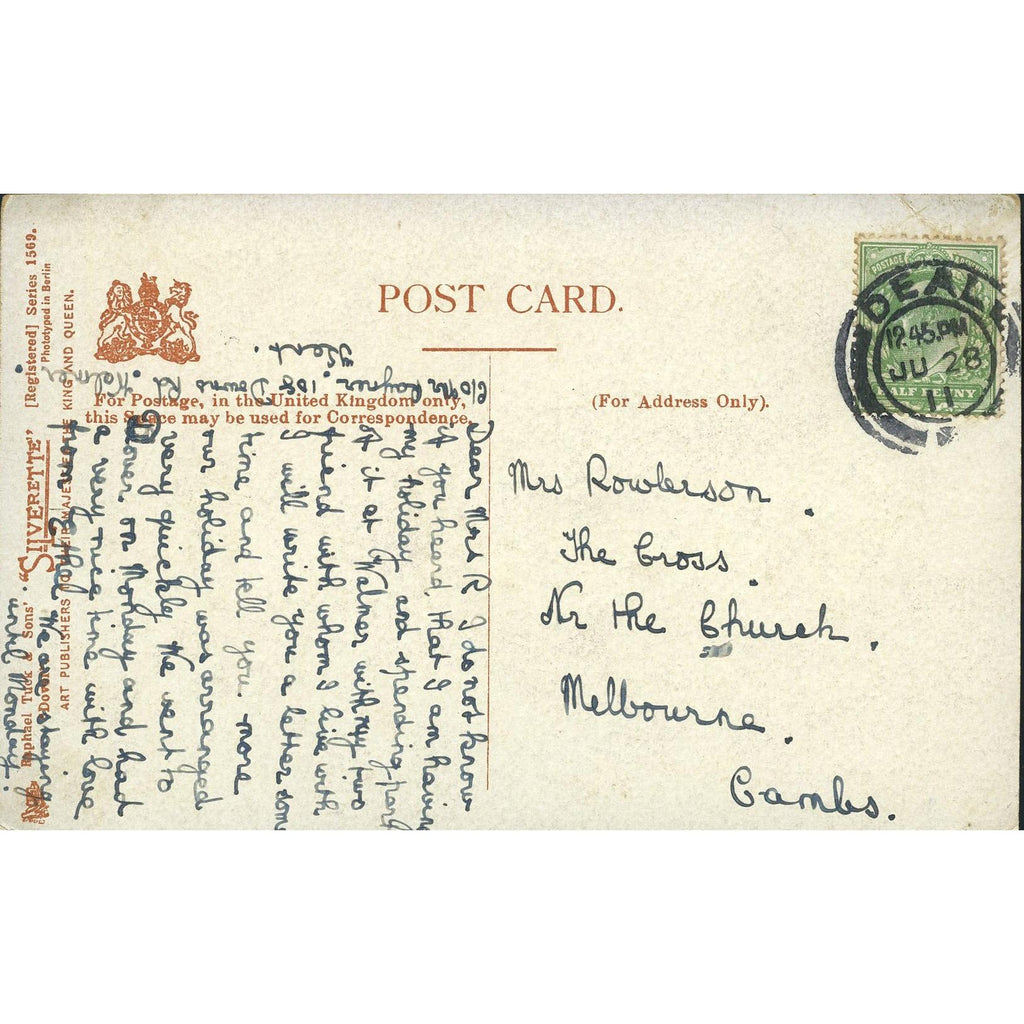 POST CARD.
For Postage, in the United Kingdom only,
this Space may be used for Correspondence.
(For Address Only).
DEAL
12.45.PM
JU 28
11
POSTAGE
HALF PENNY
Mrs Rowlerson.
The Cross.
Nr the Church.
Melbourne.
Cambs.
c/o Mr Rayner. 108 Downs Rd. Walmer,
Kent.
Dear Mrs R I do not know
if you heard that I am having
my holiday and spending part
of it at Walmer with my two
friend with whom I live with
I will write you a letter som
time and tell you more
our holiday was arranged
very quickly We went to
Dover on Monday and had
a very nice time with love
from Ethel We are staying
until Monday.
Raphael Tuck & Sons' "SILVERETTE" [Registered] Series 1569.
Phototyped in Berlin
ART PUBLISHERS TO THEIR MAJESTIES THE KING AND QUEEN.